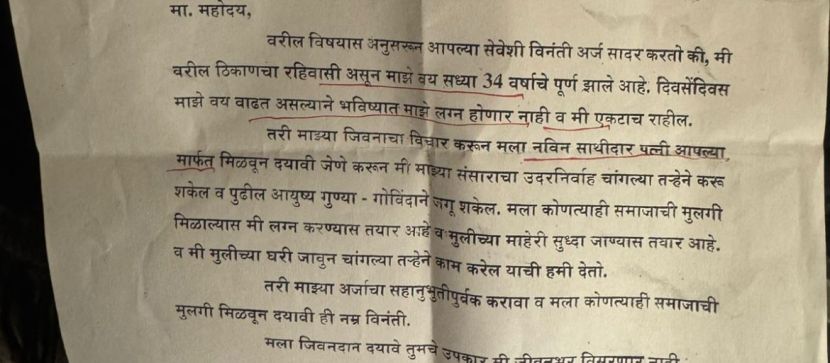 मा. महोदय,
वरील विषयास अनुसरून आपल्या सेवेशी विनंती अर्ज सादर करतो की, मी
वरील ठिकाणचा रहिवासी असून माझे वय सध्या 34 वर्षाचे पूर्ण झाले आहे. दिवसेंदिवस
माझे वय वाढत असल्याने भविष्यात माझे लग्न होणार नाही व मी एकटाच राहील.
तरी माझ्या जिवनाचा विचार करून मला नविन साथीदार पत्नी आपल्या
मार्फत मिळवून दयावी जेणे करून मी माझ्या संसाराचा उदरनिर्वाह चांगल्या तऱ्हेने करू
शकेल व पुढील आयुष्य गुण्या - गोविंदाने जगू शकेल. मला कोणत्याही समाजाची मुलगी
मिळाल्यास मी लग्न करण्यास तयार आहे व मुलीच्या माहेरी सुध्दा जाण्यास तयार आहे.
व मी मुलीच्या घरी जावुन चांगल्या तऱ्हेने काम करेल याची हमी देतो.
तरी माझ्या अर्जाचा सहानुभुतीपुर्वक करावा व मला कोणत्याही समाजाची
मुलगी मिळवून दयावी ही नम्र विनंती.
मला जिवनदान दयावे तुमचे उपकार मी जीवनभर विसरणार नाही